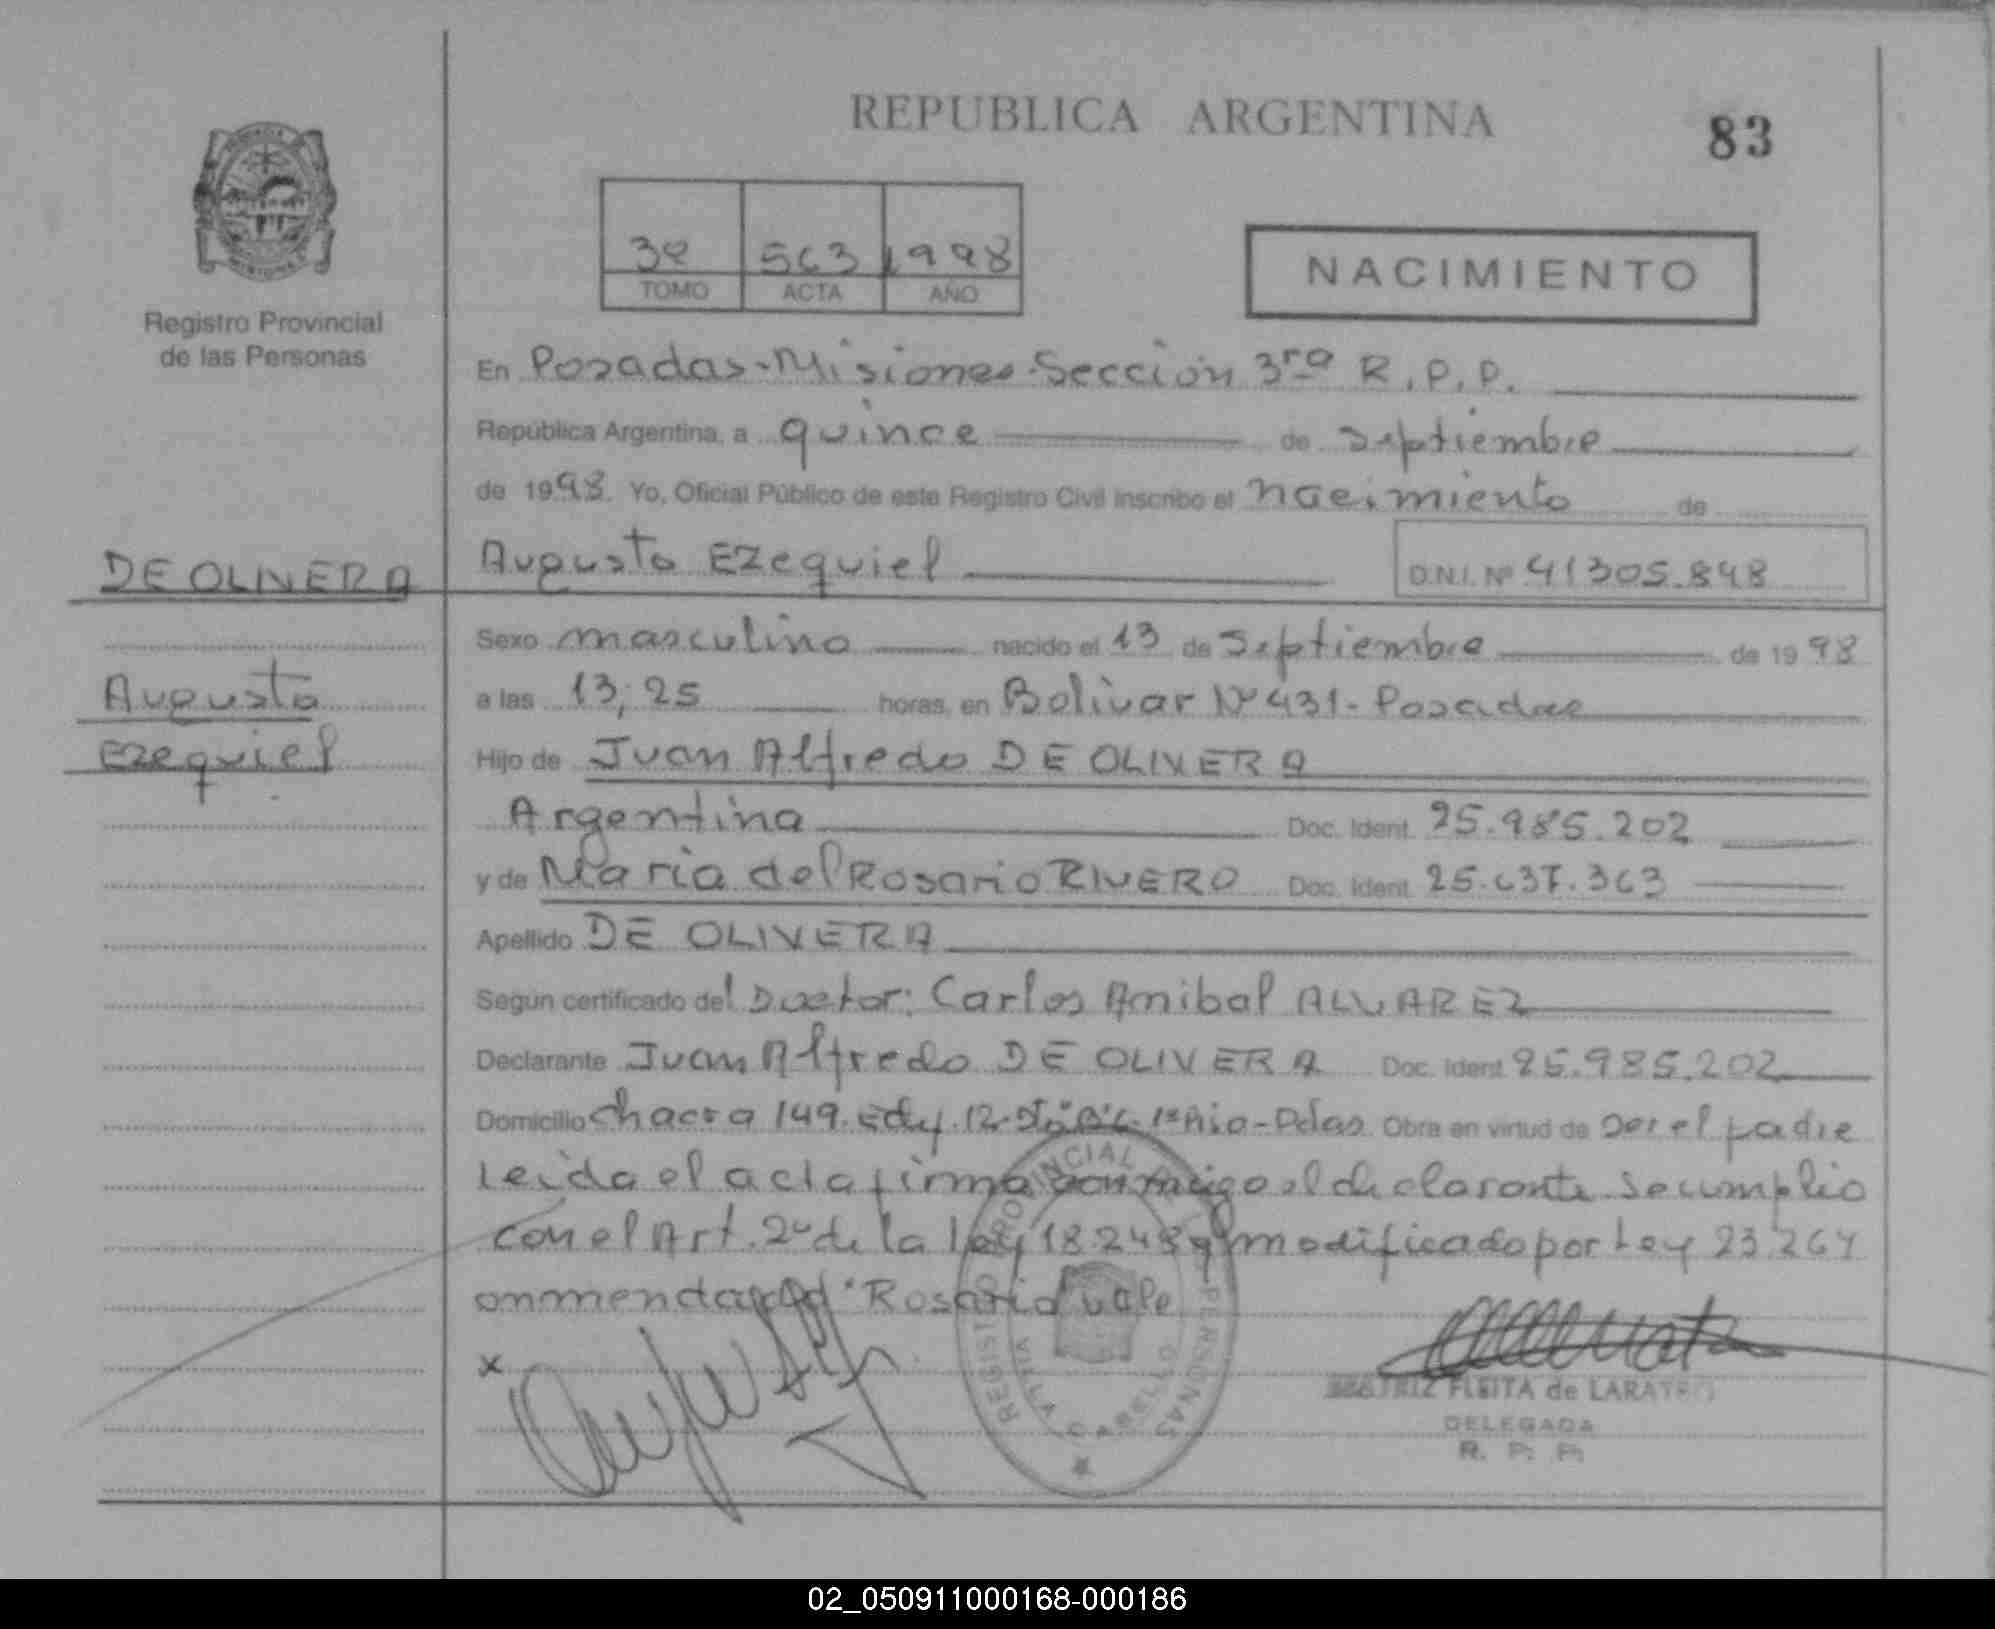 REPUBLICA ARGENTINA
83
3º 563 1998
TOMO ACTA AÑO
NACIMIENTO
Registro Provincial
de las Personas
En Posadas-Misiones-Sección 3ra R.P.P.
República Argentina, a quince de septiembre
de 1998. Yo, Oficial Público de este Registro Civil inscribo el nacimiento de
DE OLIVERA
Augusto Ezequiel
D.N.I. Nº 41305.848
Augusto
Ezequiel
Sexo masculino nacido el 13 de Septiembre de 1998
a las 13;25 horas, en Bolivar Nº 431- Posadas
Hijo de Juan Alfredo DE OLIVERA
Argentina Doc. Ident. 25.985.202
y de Maria del Rosario RIVERO Doc. Ident. 25.637.363
Apellido DE OLIVERA
Según certificado del Doctor: Carlos Anibal ALVAREZ
Declarante Juan Alfredo DE OLIVERA Doc. Ident. 25.985.202
Domicilio chacra 149. Edif. 12. Pdas Obra en virtud de ser el padre
Leida el acta firma conmigo el declarante se cumplio
con el Art. 2º de la Ley 18.248 modificado por Ley 23.264
enmendado "Rosario" vale
x
REGISTRO PROVINCIAL DE LAS PERSONAS
VILLA CABELLO
BEATRIZ FLEITA de LARATRO
DELEGADA
R. P. P.
02_050911000168-000186